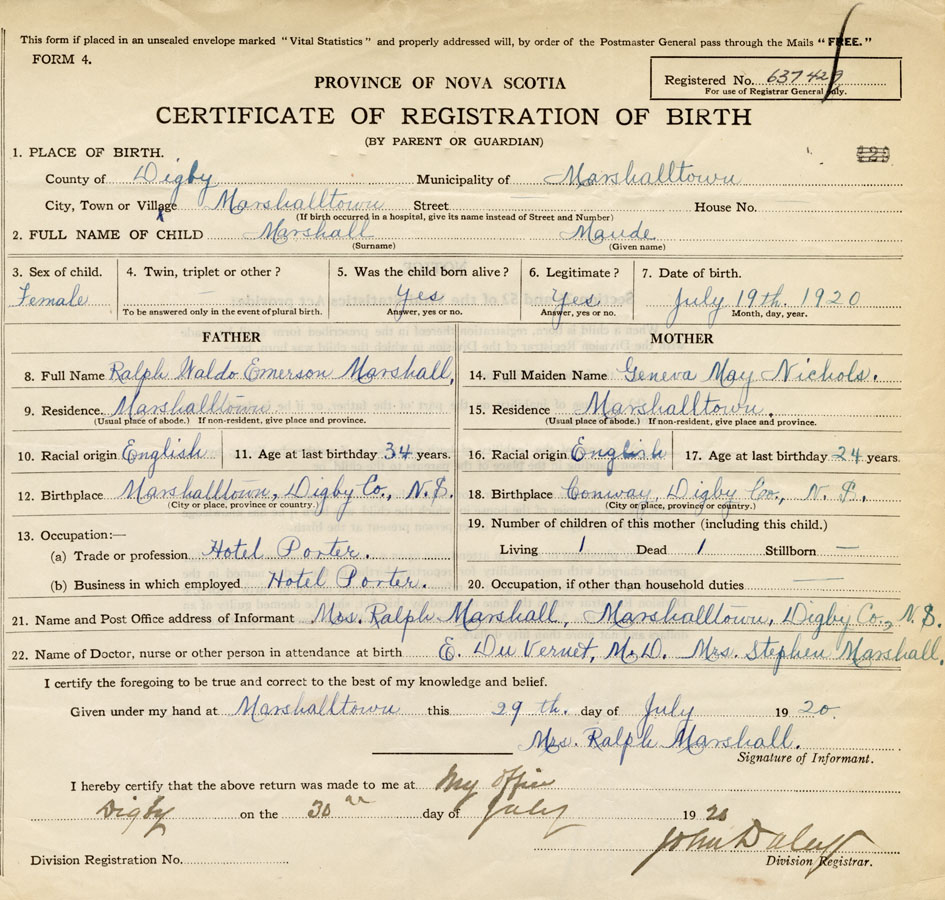 This form if placed in an unsealed envelope marked "Vital Statistics" and properly addressed will, by order of the Postmaster General pass through the Mails "FREE."
FORM 4.
Registered No. 637429
For use of Registrar General only.
PROVINCE OF NOVA SCOTIA
CERTIFICATE OF REGISTRATION OF BIRTH
(BY PARENT OR GUARDIAN)
1. PLACE OF BIRTH.
County of Digby Municipality of Marshalltown
City, Town or Village Marshalltown Street House No.
(If birth occurred in a hospital, give its name instead of Street and Number)
2. FULL NAME OF CHILD Marshall Maude
(Surname) (Given name)
3. Sex of child. 4. Twin, triplet or other ? 5. Was the child born alive ? 6. Legitimate ? 7. Date of birth.
Female — Yes Yes July 19th. 1920
To be answered only in the event of plural birth. Answer, yes or no. Answer, yes or no. Month, day, year.
FATHER MOTHER
8. Full Name Ralph Waldo Emerson Marshall, 14. Full Maiden Name Geneva May Nichols.
9. Residence. Marshalltown 15. Residence Marshalltown.
(Usual place of abode.) If non-resident, give place and province. (Usual place of abode.) If non-resident, give place and province.
10. Racial origin English 11. Age at last birthday 34 years. 16. Racial origin English 17. Age at last birthday 24 years.
12. Birthplace Marshalltown, Digby Co., N.S. 18. Birthplace Conway, Digby Co., N. S.
(City or place, province or country.) (City or place, province or country.)
13. Occupation:— 19. Number of children of this mother (including this child.)
(a) Trade or profession Hotel Porter. Living 1 Dead 1 Stillborn —
(b) Business in which employed Hotel Porter. 20. Occupation, if other than household duties —
21. Name and Post Office address of Informant Mrs. Ralph Marshall, Marshalltown, Digby Co., N.S.
22. Name of Doctor, nurse or other person in attendance at birth E. Du Vernet, M.D. Mrs. Stephen Marshall,
I certify the foregoing to be true and correct to the best of my knowledge and belief.
Given under my hand at Marshalltown this 29th. day of July 1920.
Mrs. Ralph Marshall.
Signature of Informant.
I hereby certify that the above return was made to me at My office
Digby on the 30th day of July 1920
John Daley
Division Registration No. Division Registrar.